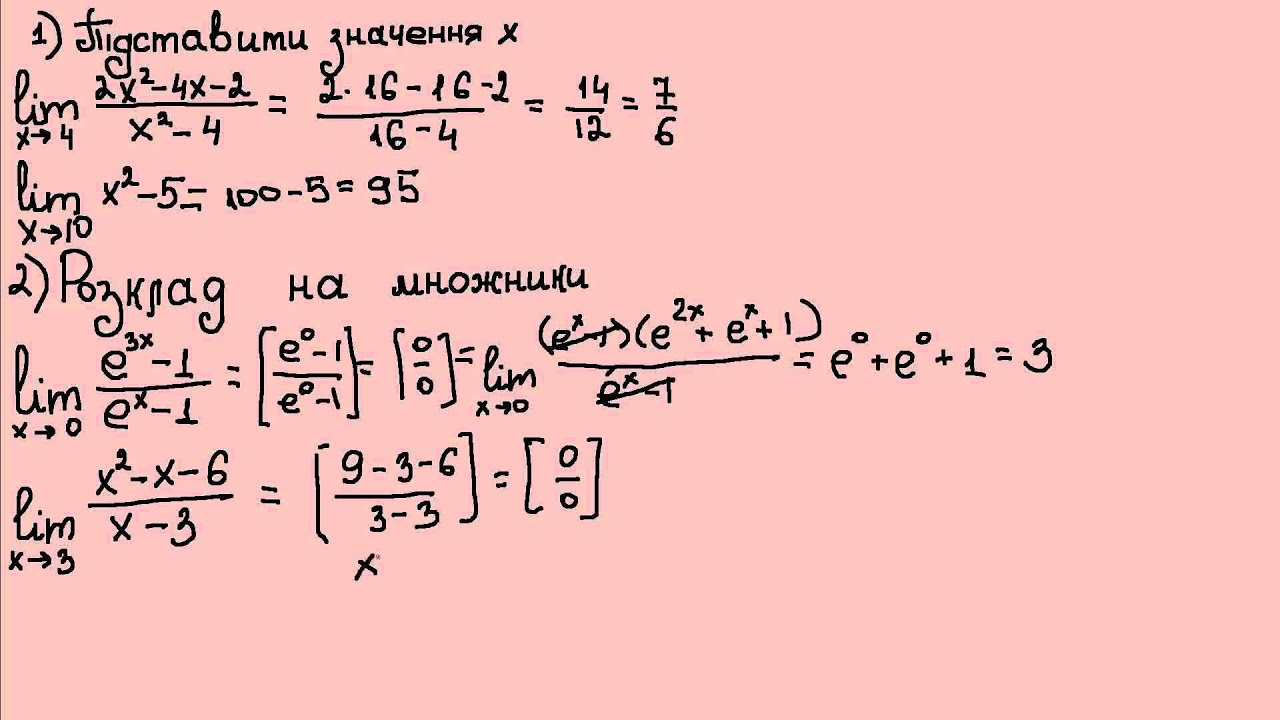 1) Підставити значення x
lim x→4 (2x²-4x-2)/(x²-4) = (2·16-16-2)/(16-4) = 14/12 = 7/6
lim x→10 x²-5 = 100-5 = 95
2) Розклад на множники
lim x→0 (e^3x-1)/(e^x-1) = [(e⁰-1)/(e⁰-1)] = [0/0] = lim x→0 (e^x-1)(e^2x+e^x+1)/(e^x-1) = e⁰+e⁰+1 = 3
lim x→3 (x²-x-6)/(x-3) = [(9-3-6)/(3-3)] = [0/0]
x